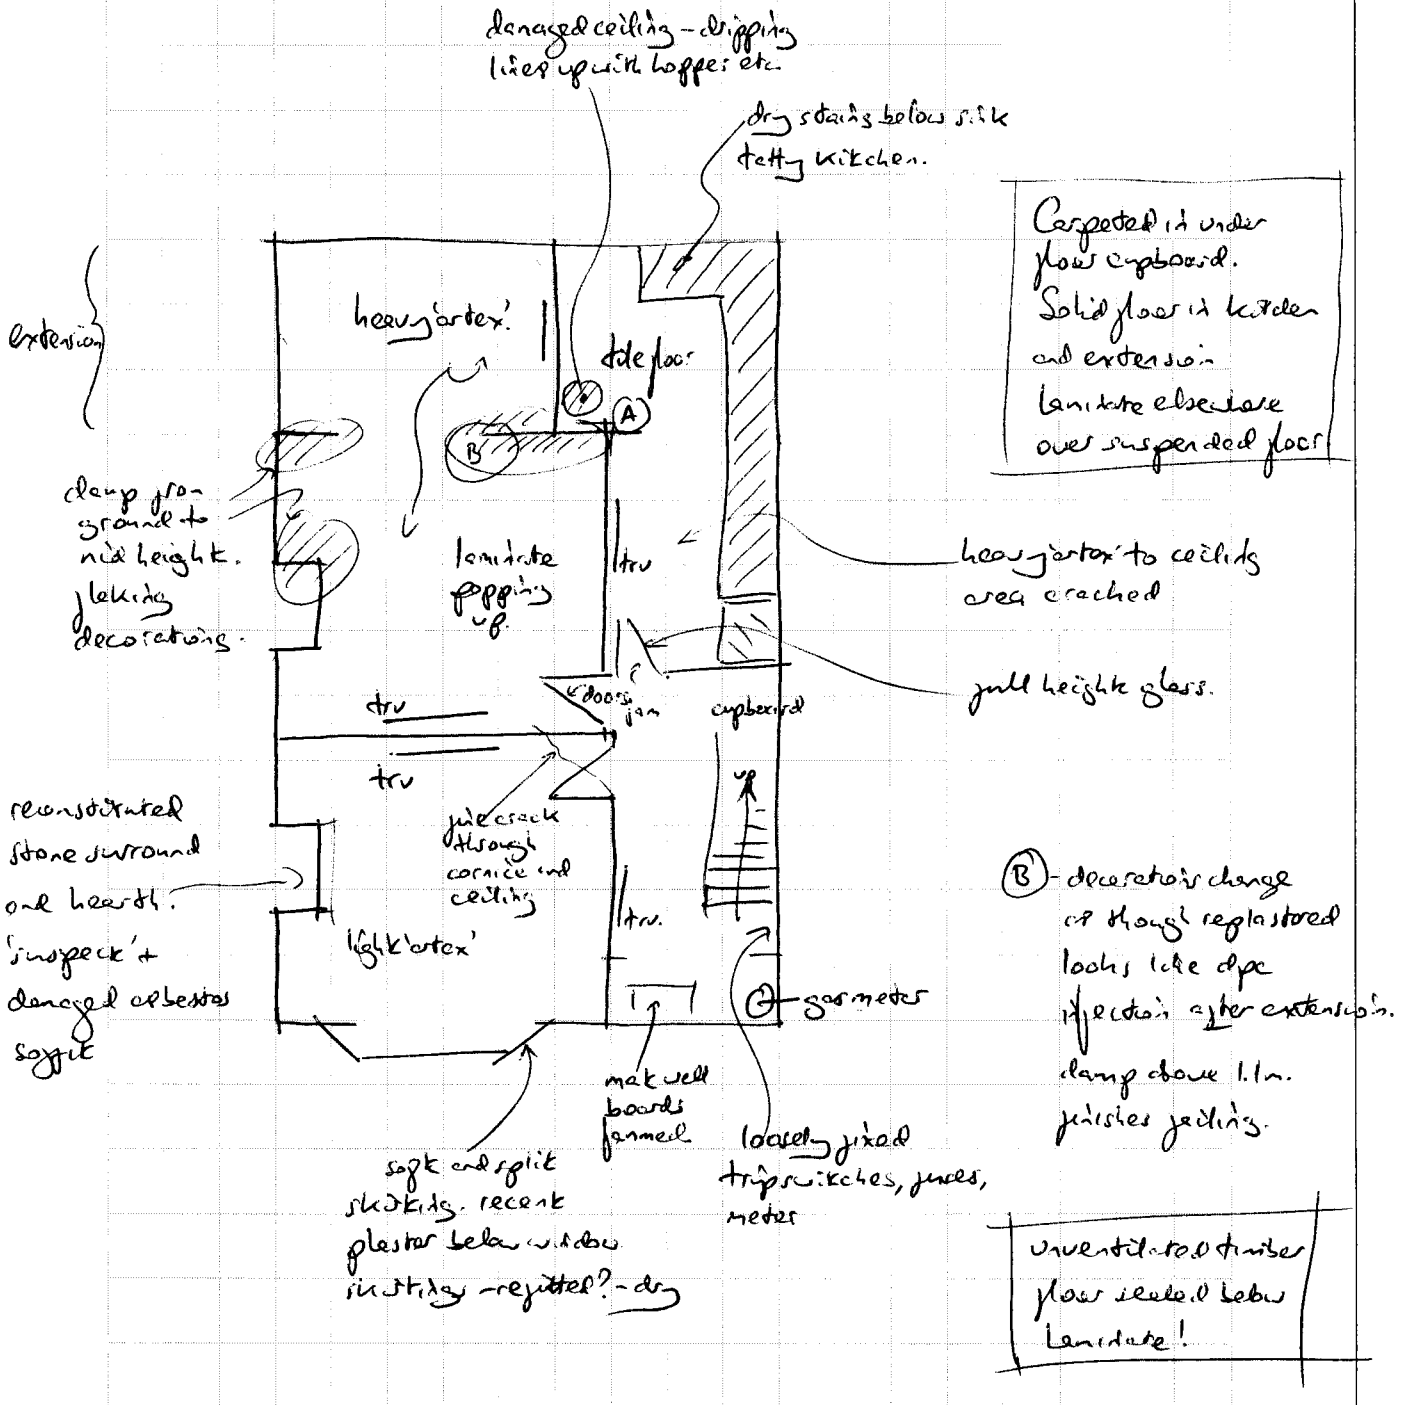 damaged ceiling - dripping
lines up with hopper etc.
dry stains below sink
tatty kitchen.
Carpeted in under
floor cupboard.
Solid floor in kitchen
and extension
laminate elsewhere
over suspended floor
extension
heavy 'artex'.
tile floor
A
B
damp from
ground to
mid height.
flaking
decorations.
laminate
popping
up.
trv
heavy 'artex' to ceiling
area cracked
full height glass.
doors
jam
cupboard
trv
trv
up
reconstituted
stone surround
and hearth.
'inspeck' +
damaged asbestos
soffit
fine crack
through
cornice and
ceiling
trv.
light 'artex'
gas meter
B - decorations change
as though replastered
looks like dpc
injection after extension.
damp above 1.1m.
finishes failing.
mat well
boards
formed
loosely fixed
trip switches, fuses,
meter
soft and split
skirting. recent
plaster below window
skirtings - refitted? - dry
unventilated timber
floor sealed below
laminate!